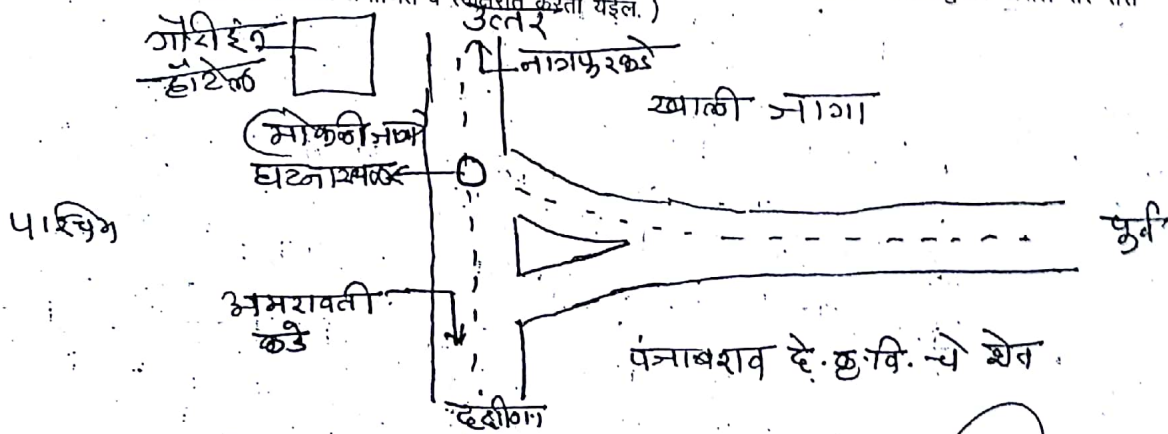 करता येईल.)
उत्तर
गौरीईन
हॉटेल
नागपुरकडे
खाली जागा
मोकळी जागा
घटनास्थळ
पाश्चिम
पूर्व
अमरावती
कडे
पंजाबराव दे. कृ. वि. चे शेत
दक्षीण